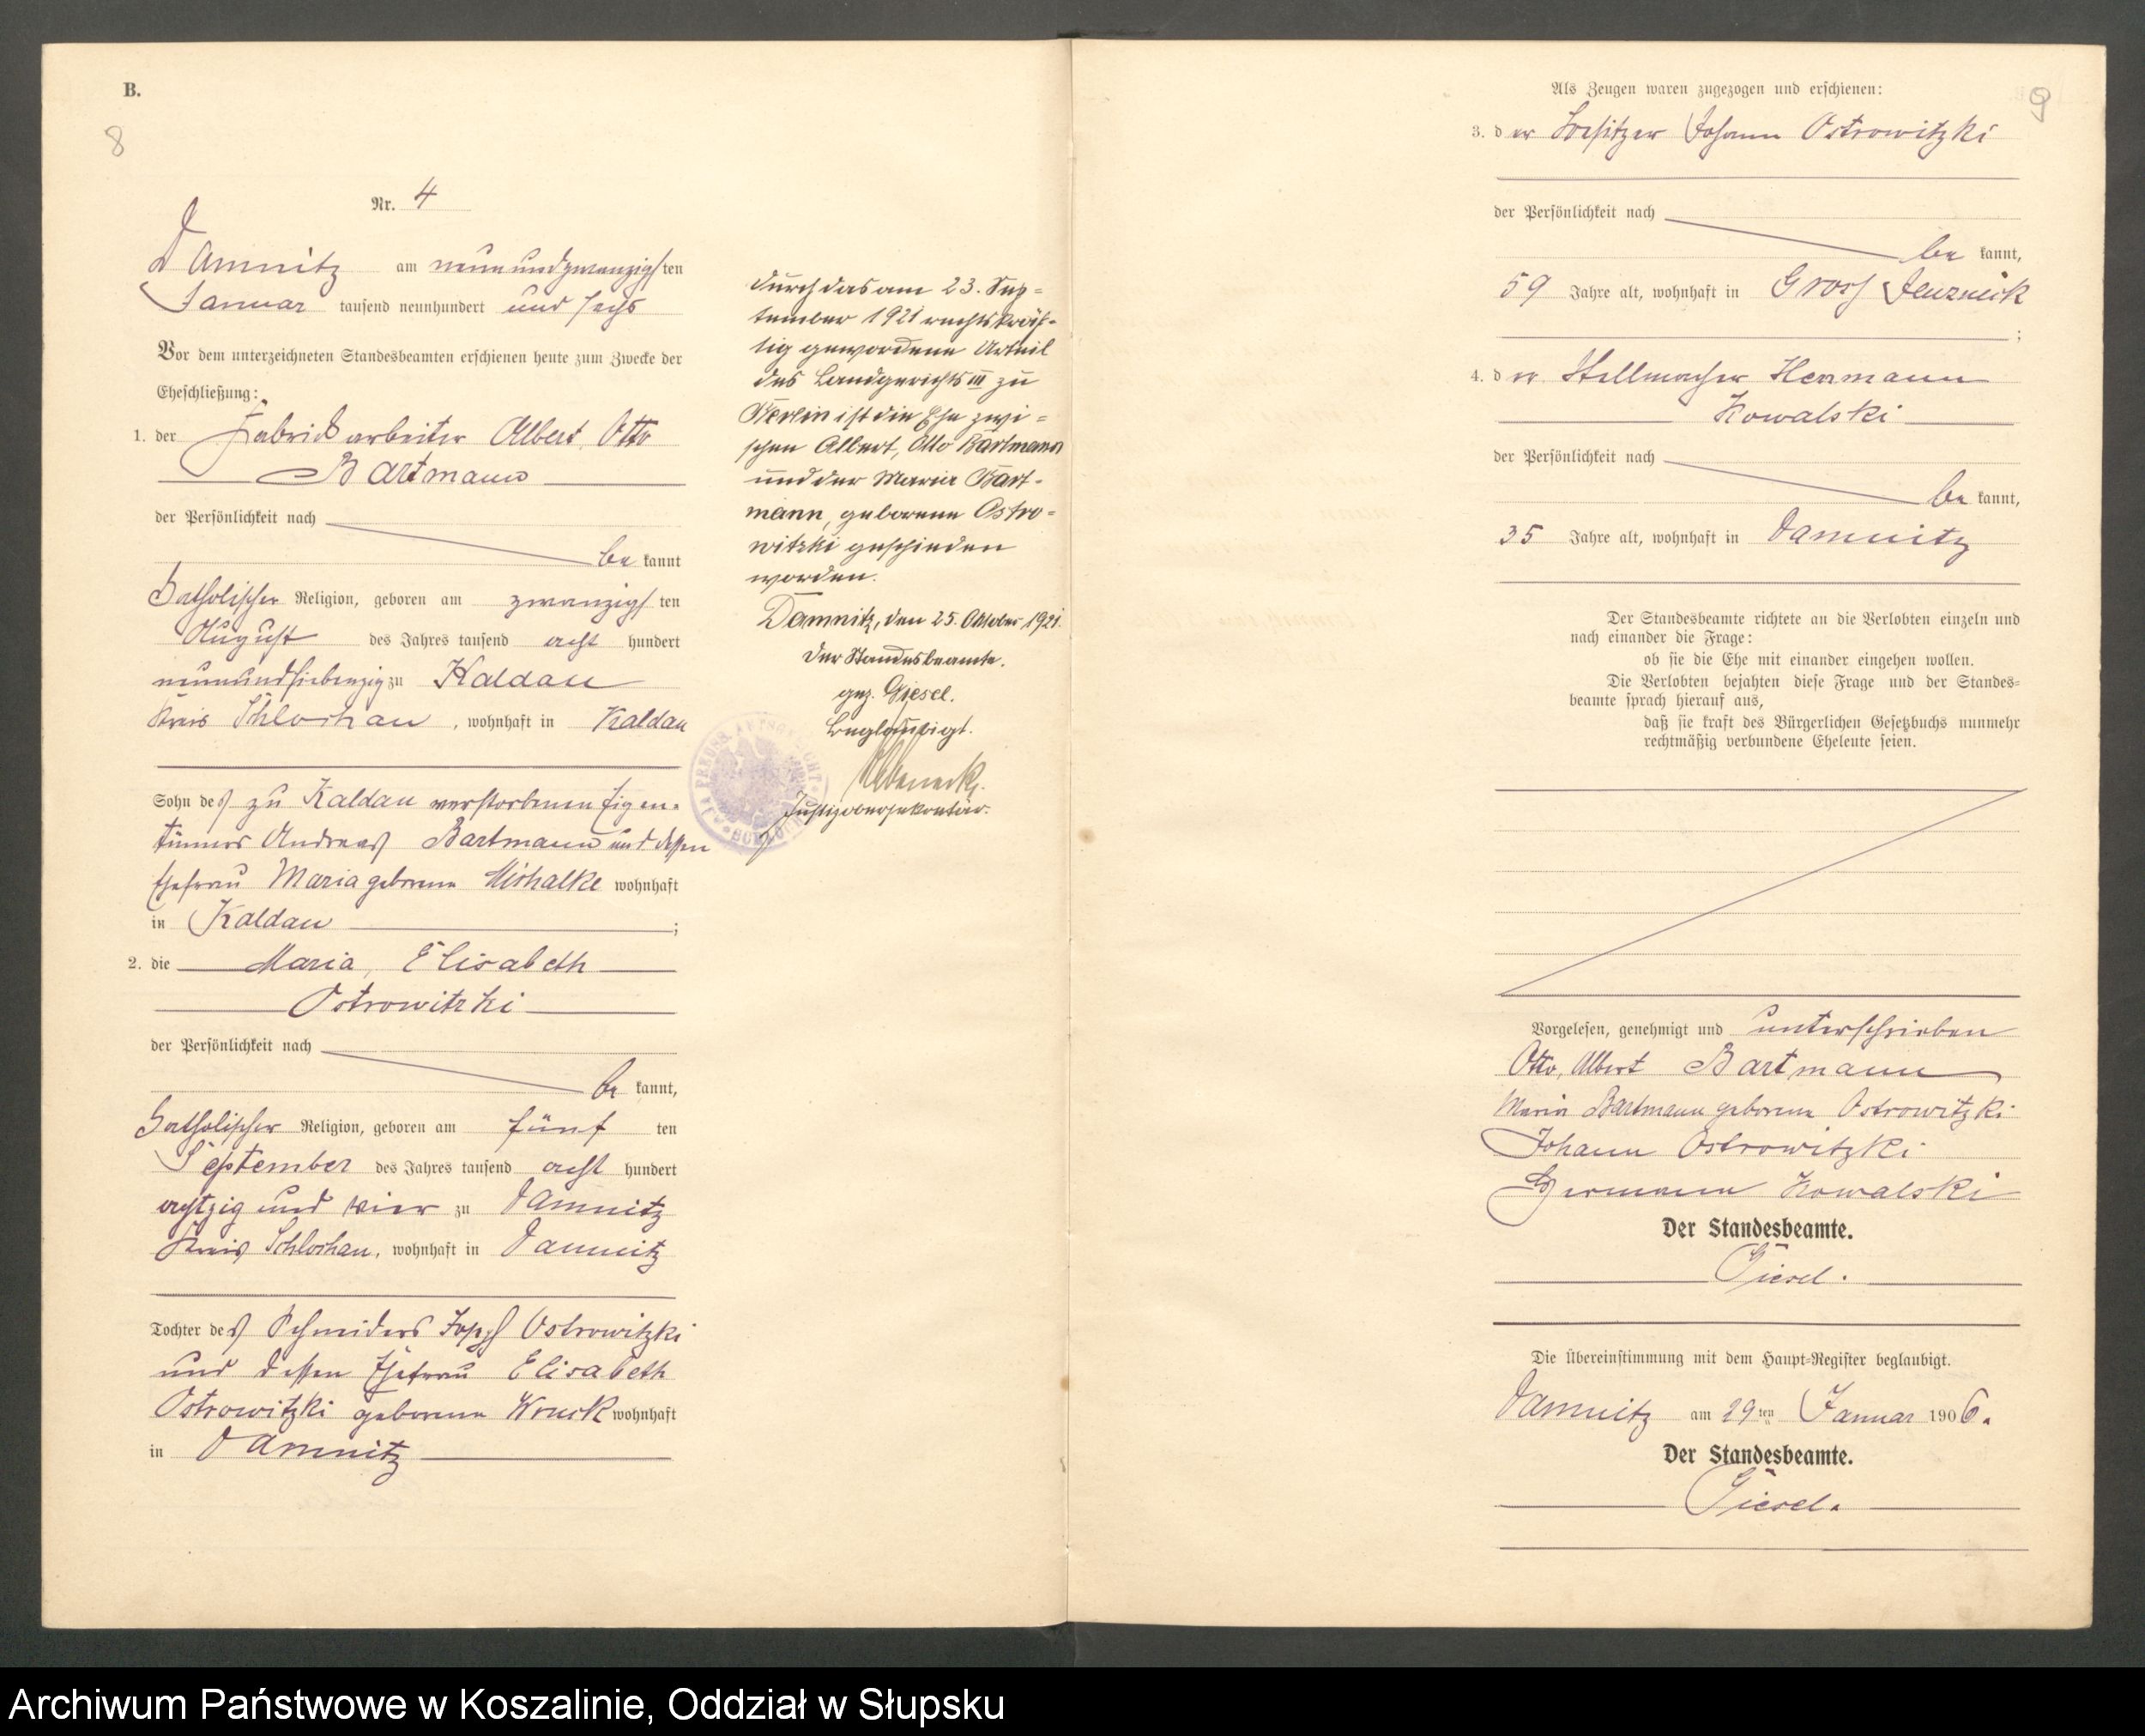 B.
8
Nr. 4
Damnitz am neunundzwanzigsten
Januar tausend neunhundert und sechs
Vor dem unterzeichneten Standesbeamten erschienen heute zum Zwecke der
Eheschließung:
1. der Fabrikarbeiter Albert, Otto
Bartmann
der Persönlichkeit nach
be kannt
katholischer Religion, geboren am zwanzigsten
August des Jahres tausend acht hundert
neunundsiebenzig zu Kaldau
Kreis Schlochau, wohnhaft in Kaldau
Sohn des zu Kaldau verstorbenen Eigen-
tümers Andreas Bartmann und dessen
Ehefrau Maria geborene Mishalke wohnhaft
in Kaldau ;
2. die Maria, Elisabeth
Ostrowitzki
der Persönlichkeit nach
be kannt,
katholischer Religion, geboren am fünf ten
September des Jahres tausend acht hundert
achtzig und vier zu Damnitz
Kreis Schlochau, wohnhaft in Damnitz
Tochter des Schneiders Joseph Ostrowitzki
und dessen Ehefrau Elisabeth
Ostrowitzki geborene wohnhaft
in Damnitz
Durch das am 23. Sep-
tember 1921 rechtskräf-
tig gewordene Urteil
des Landgerichts III zu
Berlin ist die Ehe zwi-
schen Albert, Otto Bartmann
und der Maria Bart-
mann, geborene Ostro-
witzki geschieden
worden.
Damnitz, den 25. Oktober 1921.
Der Standesbeamte.
gez. Giesel.
Beglaubigt.
Justizobersekretär.
9
Als Zeugen waren zugezogen und erschienen:
3. der Besitzer Johann Ostrowitzki
der Persönlichkeit nach
be kannt,
59 Jahre alt, wohnhaft in Gross Jenznick
;
4. der Stellmacher Hermann
Kowalski
der Persönlichkeit nach
be kannt,
35 Jahre alt, wohnhaft in Damnitz
Der Standesbeamte richtete an die Verlobten einzeln und
nach einander die Frage:
ob sie die Ehe mit einander eingehen wollen.
Die Verlobten bejahten diese Frage und der Standes-
beamte sprach hierauf aus,
daß sie kraft des Bürgerlichen Gesetzbuchs nunmehr
rechtmäßig verbundene Eheleute seien.
Vorgelesen, genehmigt und unterschrieben
Otto, Albert Bartmann
Maria Bartmann geborene Ostrowitzki
Johann Ostrowitzki
Hermann Kowalski
Der Standesbeamte.
Giesel.
Die Übereinstimmung mit dem Haupt-Register beglaubigt.
Damnitz am 29ten Januar 1906.
Der Standesbeamte.
Giesel.
Archiwum Państwowe w Koszalinie, Oddział w Słupsku